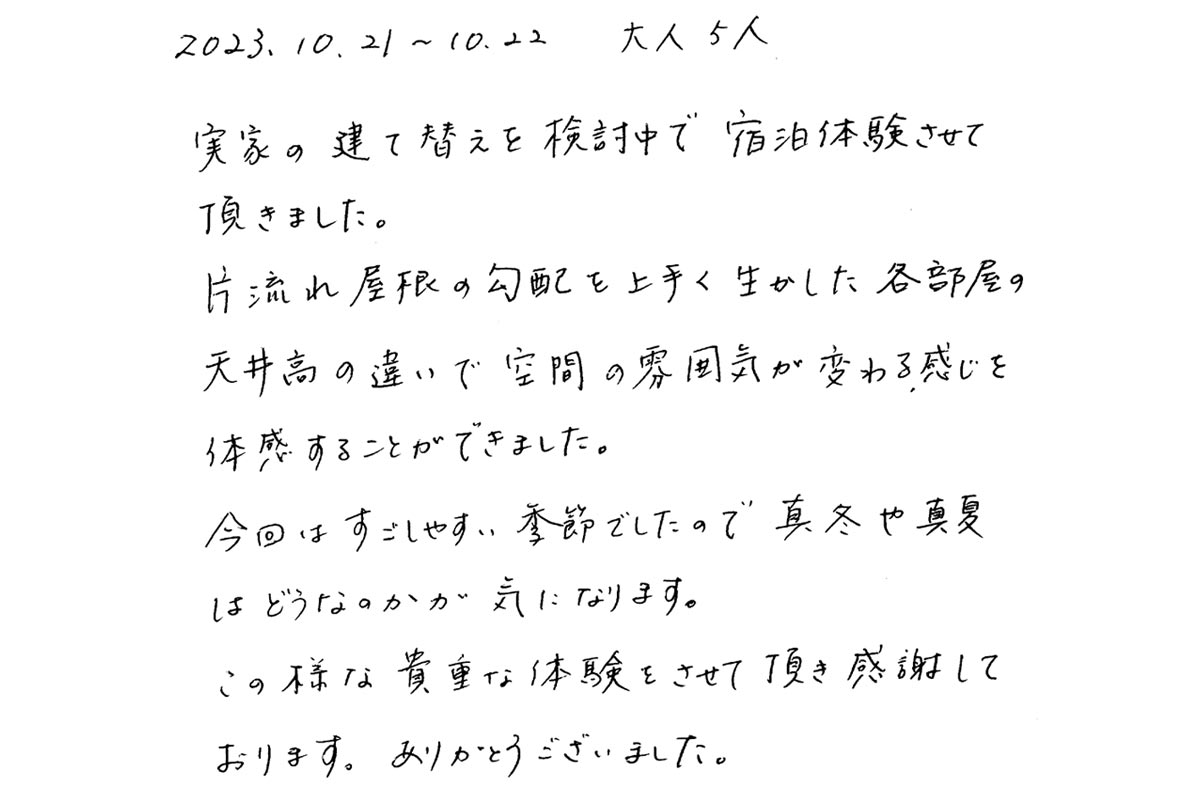 2023.10.21~10.22 大人5人
実家の建て替えを検討中で宿泊体験させて
頂きました。
片流れ屋根の勾配を上手く生かした各部屋の
天井高の違いで空間の雰囲気が変わる感じを
体感することができました。
今回はすごしやすい季節でしたので真冬や真夏
はどうなのかが気になります。
この様な貴重な体験をさせて頂き感謝して
おります。ありがとうございました。